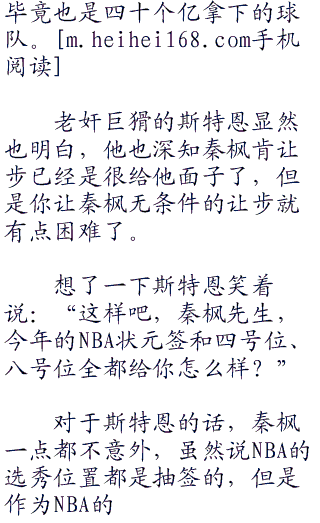 毕竟也是四十个亿拿下的球
队。[m.heihei168.com手机
阅读]
老奸巨猾的斯特恩显然
也明白，他也深知秦枫肯让
步已经是很给他面子了，但
是你让秦枫无条件的让步就
有点困难了。
想了一下斯特恩笑着
说：“这样吧，秦枫先生，
今年的NBA状元签和四号位、
八号位全都给你怎么样？”
对于斯特恩的话，秦枫
一点都不意外，虽然说NBA的
选秀位置都是抽签的，但是
作为NBA的